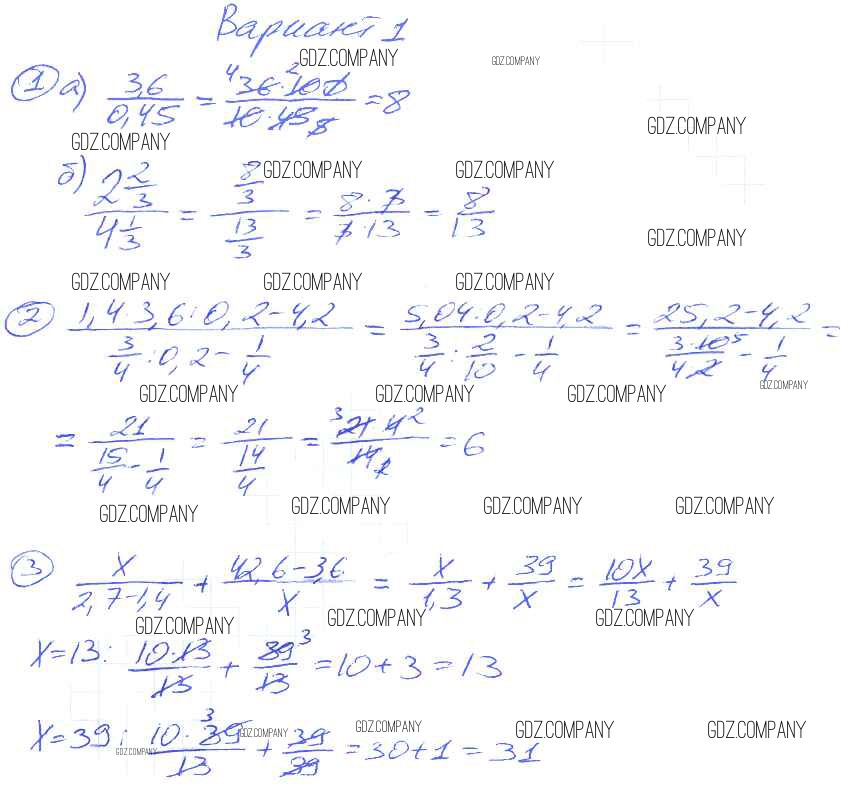 Вариант 1
GDZ.COMPANY GDZ.COMPANY
① а) 3,6/0,45 = 36·100/10·45 = 8
GDZ.COMPANY GDZ.COMPANY
б) 2 2/3 / 4 1/3 = 8/3 / 13/3 = 8·3/3·13 = 8/13
GDZ.COMPANY GDZ.COMPANY
GDZ.COMPANY
GDZ.COMPANY GDZ.COMPANY GDZ.COMPANY
② 1,4·3,6:0,2-4,2 / 3/4:0,2-1/4 = 5,04:0,2-4,2 / 3/4:2/10-1/4 = 25,2-4,2 / 3·10/4·2-1/4 =
GDZ.COMPANY GDZ.COMPANY GDZ.COMPANY GDZ.COMPANY
= 21 / 15/4-1/4 = 21 / 14/4 = 21·4/14 = 6
GDZ.COMPANY GDZ.COMPANY GDZ.COMPANY GDZ.COMPANY
③ X/2,7-1,4 + 42,6-3,6/X = X/1,3 + 39/X = 10X/13 + 39/X
GDZ.COMPANY GDZ.COMPANY GDZ.COMPANY
X=13: 10·13/13 + 39/13 = 10+3 = 13
X=39: 10·39/13 + 39/39 = 30+1 = 31
GDZ.COMPANY GDZ.COMPANY GDZ.COMPANY GDZ.COMPANY GDZ.COMPANY